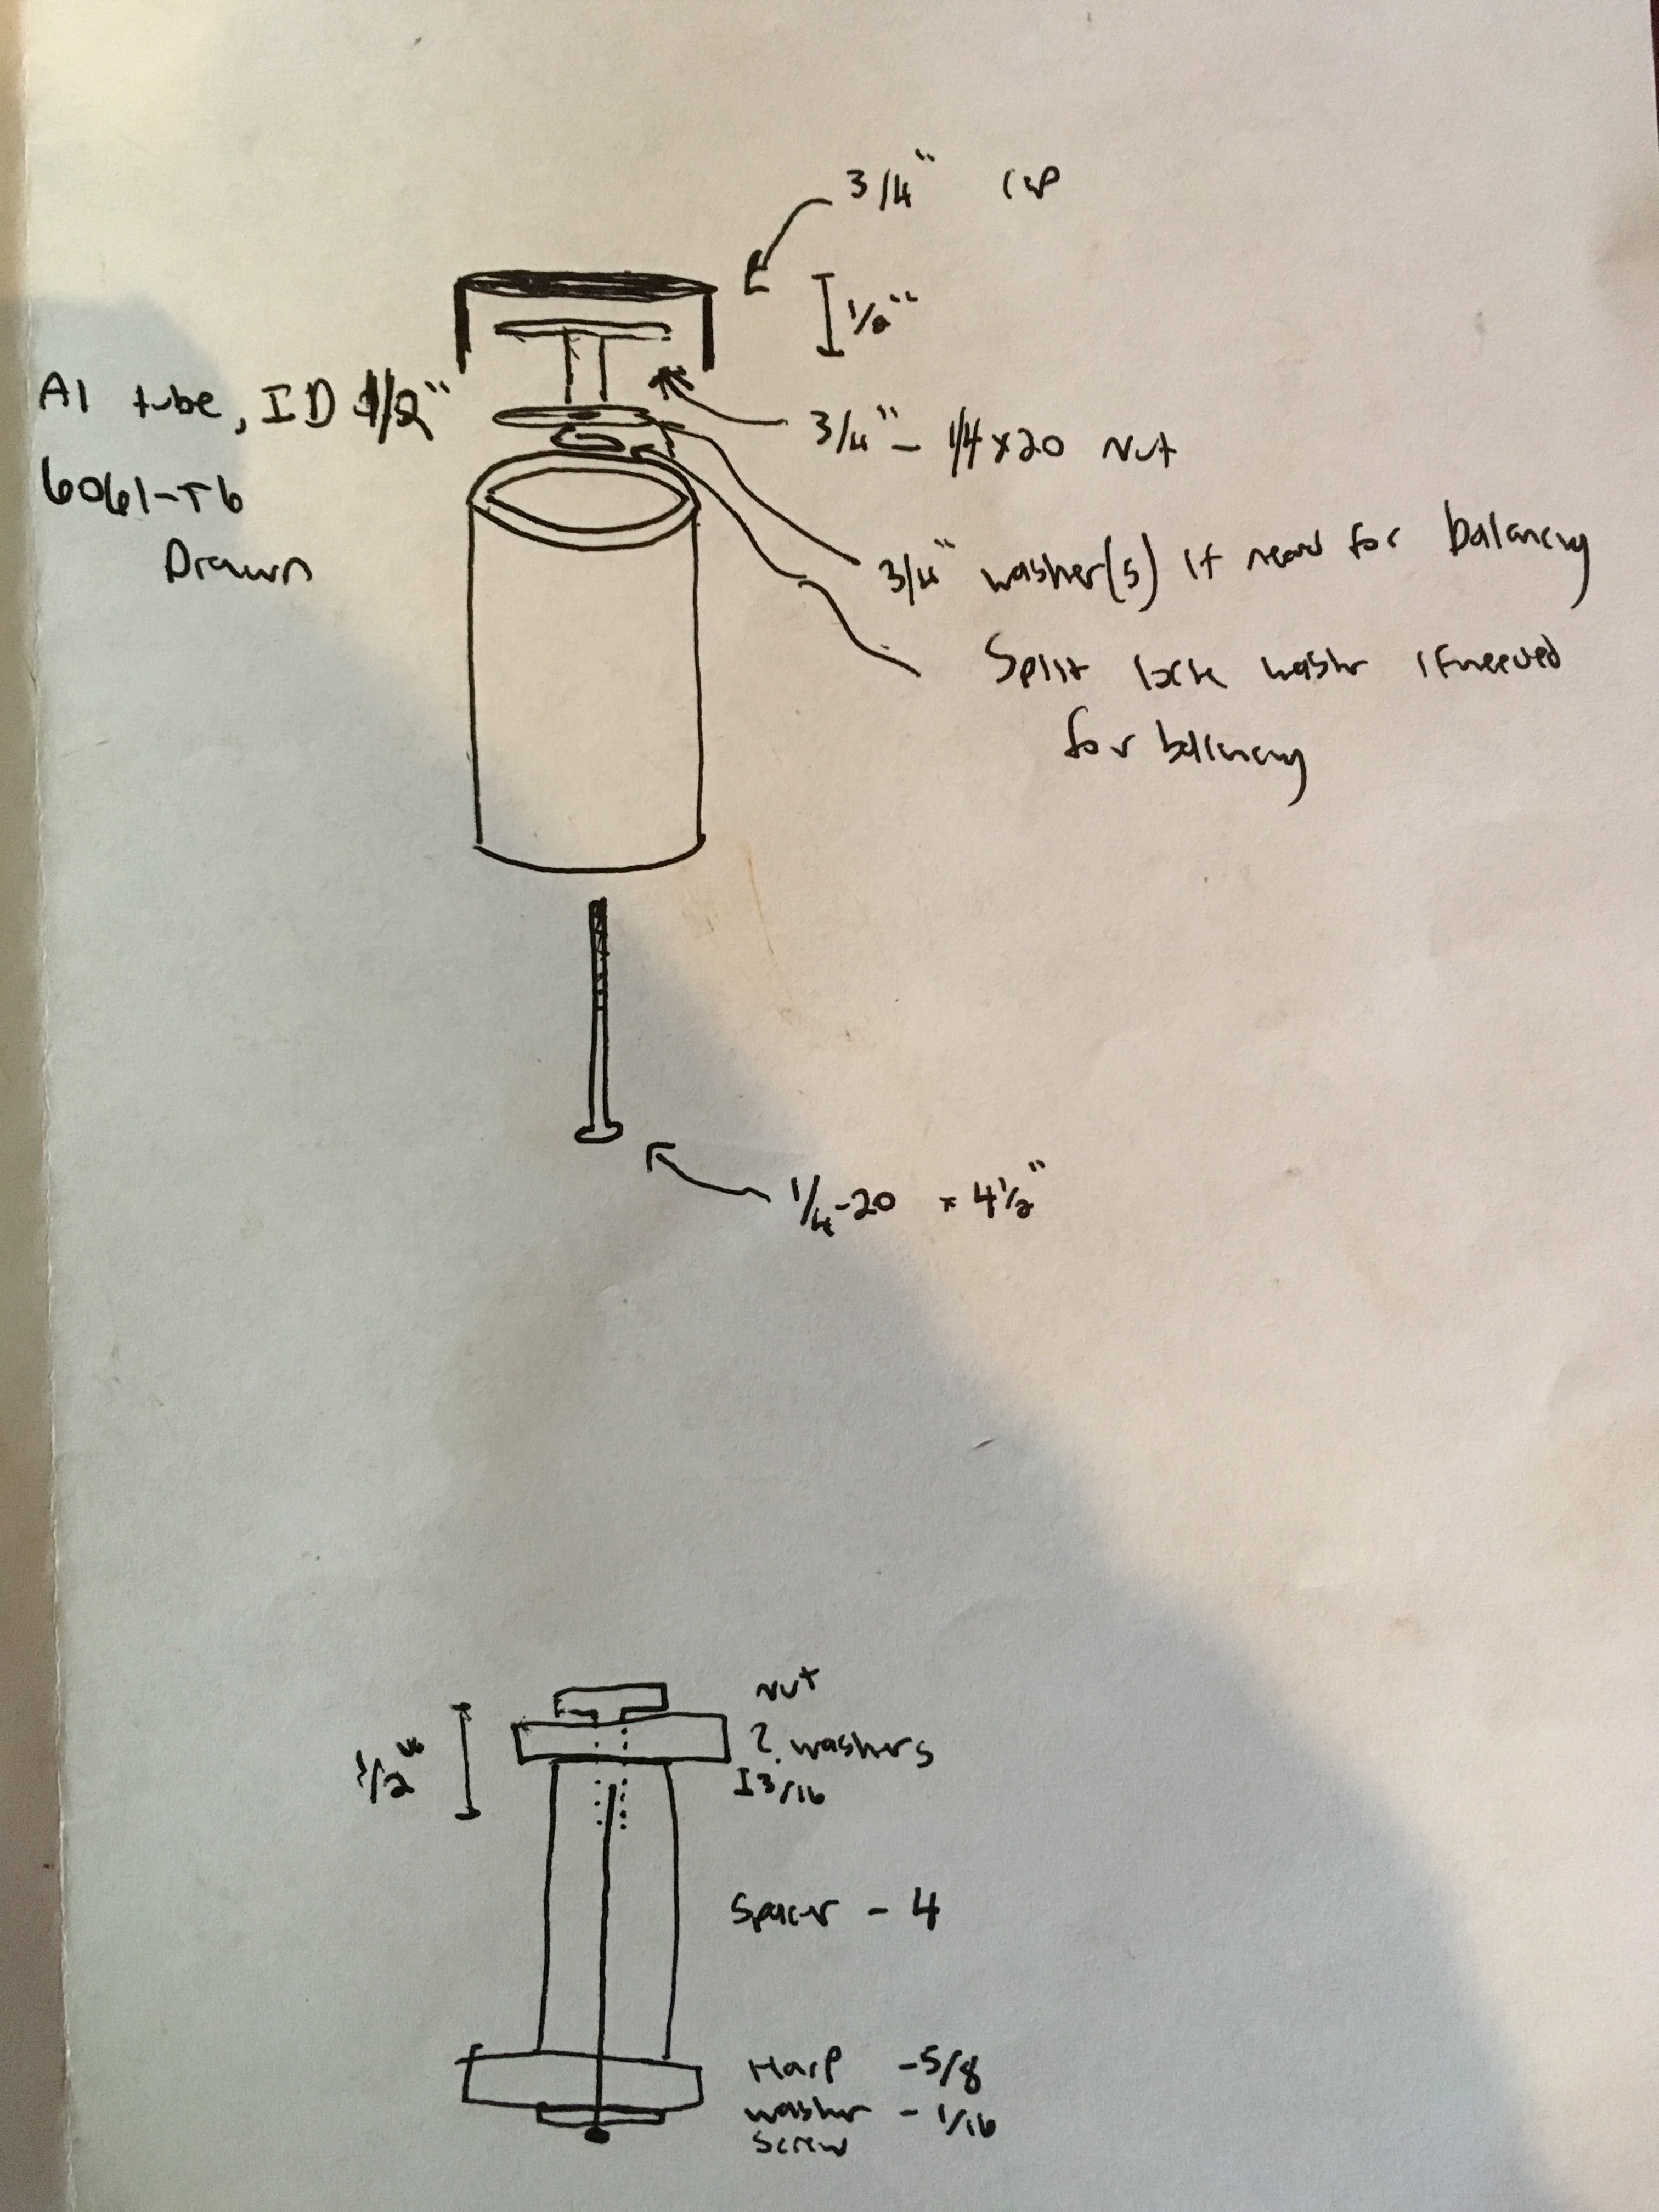 3/4" cap
1/2"
Al tube, ID 1/2"
6061-T6
Drawn
3/4" - 1/4x20 Nut
3/4" washer(s) if need for balancing
Split lock washr if needed
for balancing
1/4-20 x 4 1/2"
Nut
1/2"
2 washers
Spacer - 4
Harp - 5/8
washr - 1/16
Screw